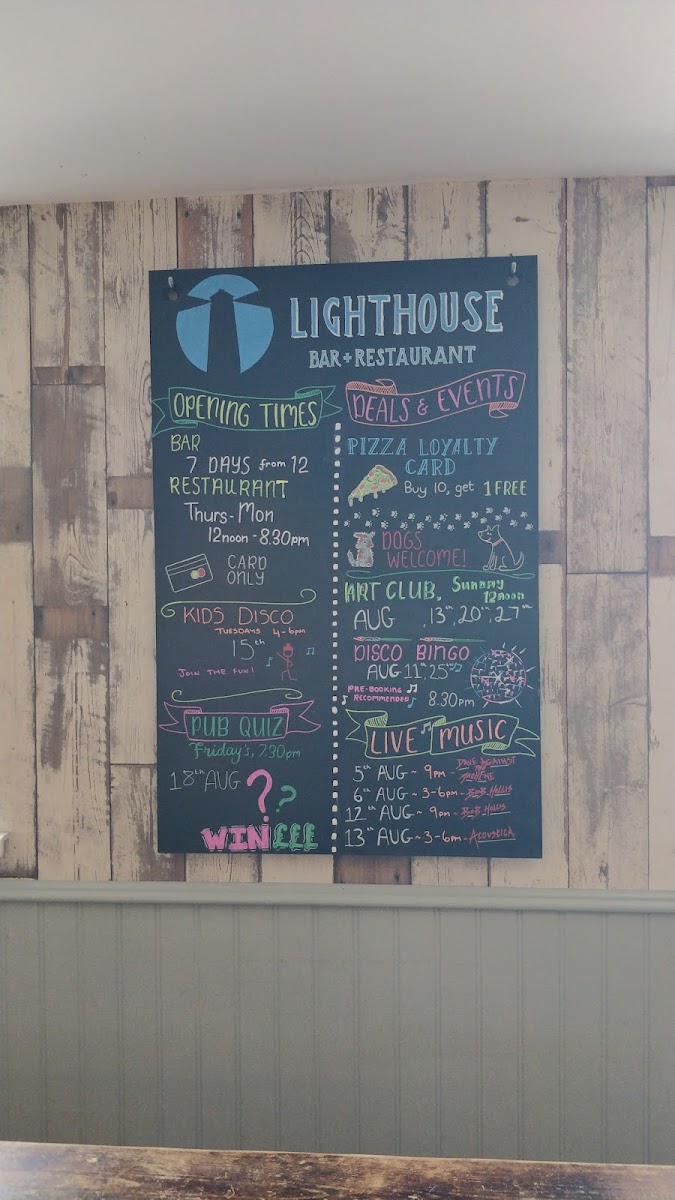 LIGHTHOUSE
BAR + RESTAURANT
OPENING TIMES
BAR
7 DAYS from 12
RESTAURANT
Thurs - Mon
12noon - 8.30pm
CARD
ONLY
KIDS DISCO
TUESDAYS 4-6pm
15th
JOIN THE FUN!
PUB QUIZ
Friday's, 7.30pm
18th AUG
??
WIN £££
DEALS & EVENTS
PIZZA LOYALTY
CARD
Buy 10, get 1 FREE
DOGS
WELCOME!
ART CLUB, Sunday
12noon
AUG 13th, 20th, 27th
DISCO BINGO
AUG 11th 25th
PRE-BOOKING
RECOMMENDED
8.30pm
LIVE MUSIC
5th AUG ~ 9pm -
6th AUG ~ 3-6pm - Bob Hollis
12th AUG ~ 9pm - Bob Hollis
13th AUG ~ 3-6pm - Acoustick